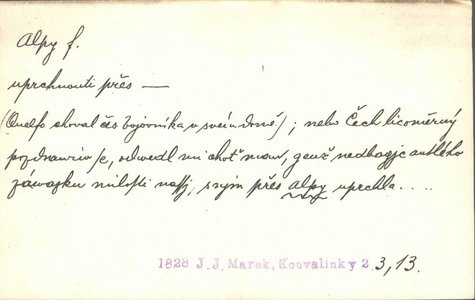 Alpy f.
uprchnouti přes —
(Oudlfo choval čes. bojovníka v svém domě); nebo Čech licoměrný
pozdrawiv se, odwedl mi chot' mau, genž nedbagjc autlého
záwazku milosti nassj, s njm přes Alpy uprchla. . . .
1828 J. J. Marek, Konvalinky 2. 3, 13.